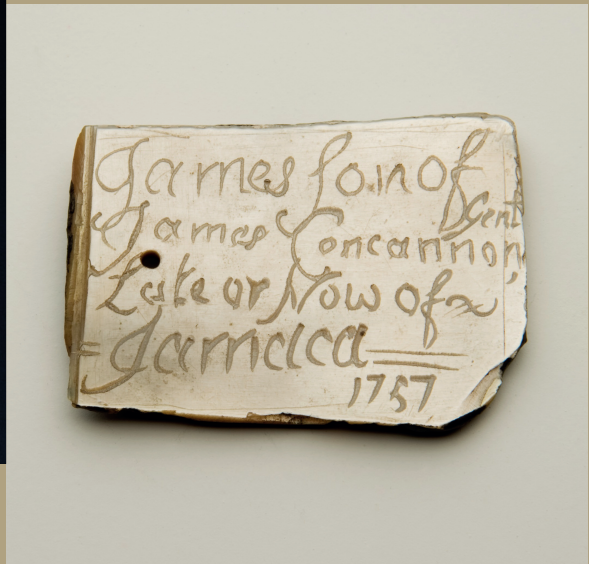 James ſon of
James Concannon Gent
Late or Now of
Jamaica
1757